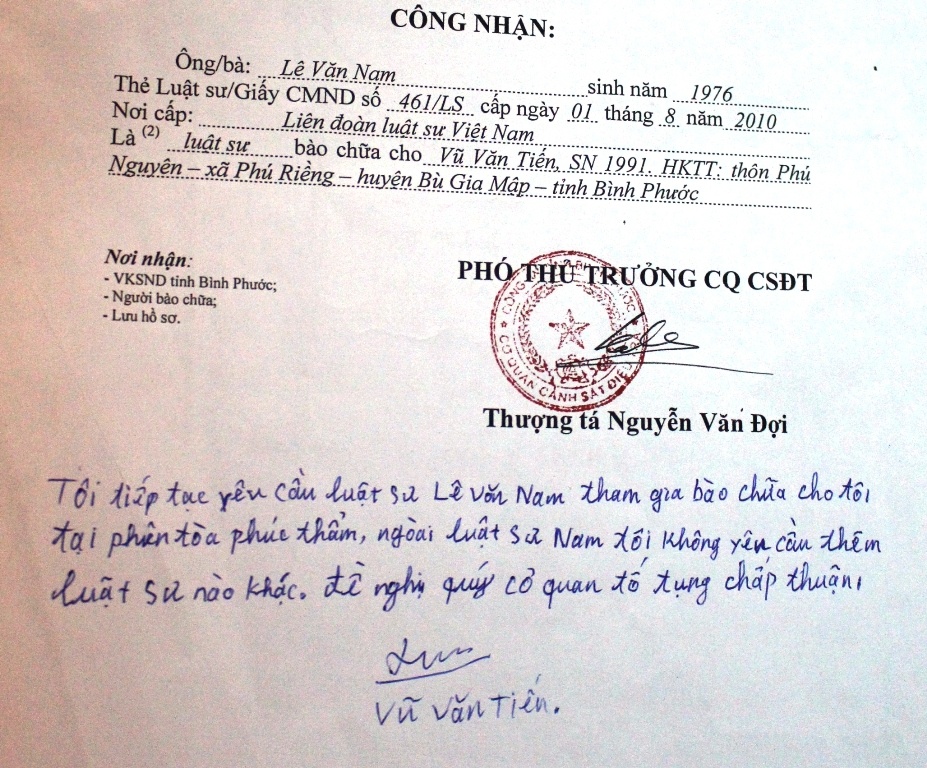 CÔNG NHẬN:
Ông/bà: Lê Văn Nam sinh năm 1976
Thẻ Luật sư/Giấy CMND số 461/LS cấp ngày 01 tháng 8 năm 2010
Nơi cấp: Liên đoàn luật sư Việt Nam
Là (2) luật sư bào chữa cho Vũ Văn Tiến, SN 1991. HKTT: thôn Phú
Nguyên – xã Phú Riềng – huyện Bù Gia Mập – tỉnh Bình Phước
Nơi nhận:
- VKSND tỉnh Bình Phước;
- Người bào chữa;
- Lưu hồ sơ.
PHÓ THỦ TRƯỞNG CQ CSĐT
CƠ QUAN CẢNH SÁT ĐIỀU
Thượng tá Nguyễn Văn Đợi
Tôi tiếp tục yên cầu luật sư Lê Văn Nam tham gia bào chữa cho tôi
tại phiên tòa phúc thẩm, ngoài luật sư Nam tôi không yên cầu thêm
luật sư nào khác. đề nghị quý cơ quan tố tụng chấp thuận.
Vũ Văn Tiến.